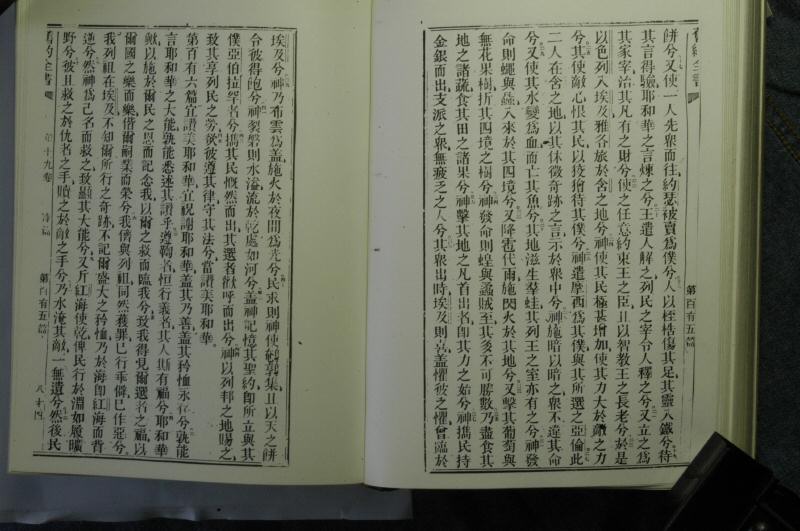 舊約全書
第百有五篇
餅兮又使一人先眾而往約瑟被賣為僕兮人以桎梏傷其足其靈入鐵兮待
其言得驗耶和華之言煉之兮王遣人解之列民之宰令人釋之兮又立之為
其家宰治其凡有之財兮使之任意約束王之臣且以智教王之長老兮於是
以色列入埃及雅各旅於含之地兮神使其民極甚增加使其力大於敵之力
兮其使敵心恨其民以狡獪待其僕兮神遣摩西為其僕與其所選之亞倫此
二人在含之地以其休徵奇跡之言示於眾中兮神施暗以暗之眾不違其命
兮又使其水變為血而亡其魚兮其地滋生羣蛙其列王之室亦有之兮神發
命則蠅與蟲入來於其四境兮又降雹代雨施閃火於其地兮又擊其葡萄與
無花果樹折其四境之樹兮神發命則蝗與蟊賊至其多不可勝數乃盡食其
地之諸蔬食其田之諸果兮神擊其地之凡首出者即其力之始兮神攜民持
金銀而出支派之眾無疲乏之人兮其眾出時埃及則喜蓋懼彼之懼曾臨於
埃及兮神乃布雲為蓋施火於夜間為光兮民求則神使鵪鶉集且以天之餅
令彼得飽兮神裂磐則水溢流於乾處如河兮蓋神記憶其聖約即所立與其
僕亞伯拉罕者兮攜其民慨然而出其選者歡呼而出兮神以列邦之地賜之
致其享列民之勞欲彼遵其律守其法兮當讚美耶和華
第百有六篇宜讚美耶和華宜祝謝耶和華蓋其乃善蓋其矜恤永存兮孰能
言耶和華之大能孰能悉述其讚乎遵鞫者恆行義者其人斯有福兮耶和華
歟以施於爾民之恩而記念我以爾之救而臨我兮致我得見爾選者之福以
爾國之樂而樂偕爾嗣業而榮兮我儕與列祖同然獲罪已行乖僻已作惡兮
我列祖在埃及不知爾所行之奇跡不記爾盛大之矜恤乃於海即紅海而背
逆兮然神為己名而救之致顯其大能兮又斥紅海使乾俾民行於淵如履曠
野兮彼且救之於仇者之手贖之於敵之手兮乃水淹其敵一無遺兮然後民
舊約全書
第十九卷
詩篇
第百有五篇
八十四